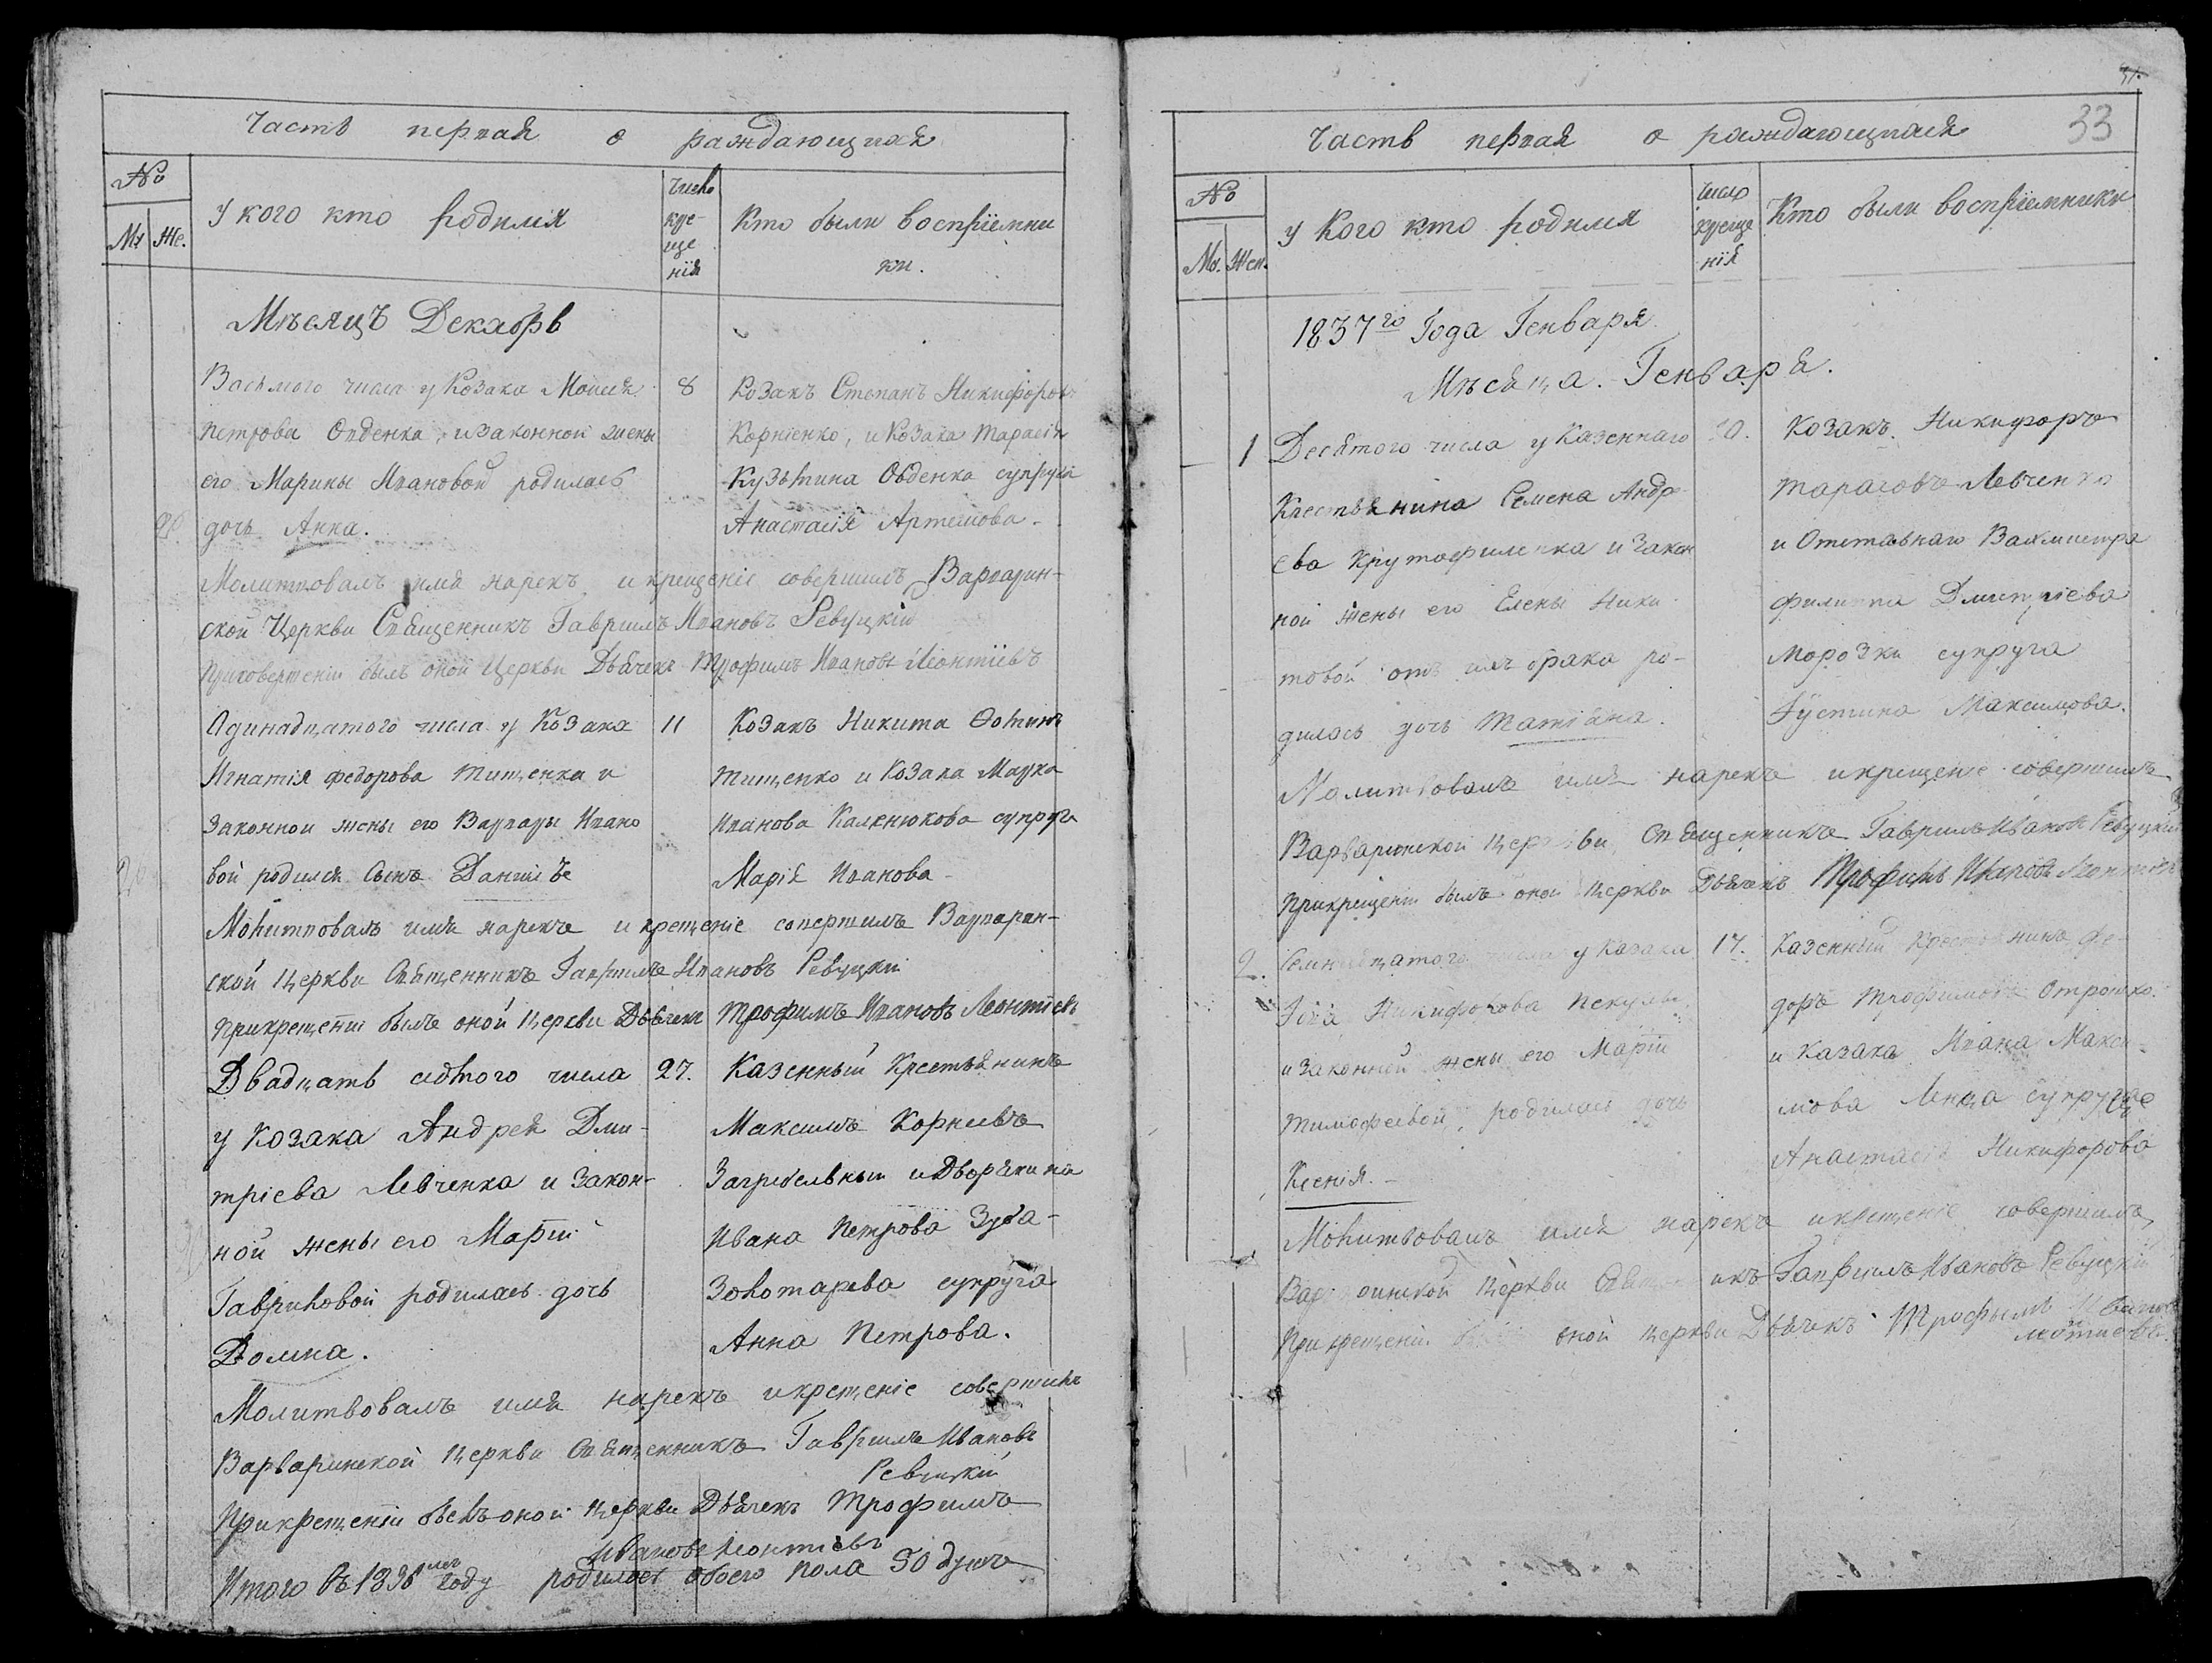 Часть первая о раждающихся
No
Му Же.
У кого кто родился
Число
кре-
ще
нія
Кто были воспріемни
ки.
Мѣсяцъ Декабрь
Восьмого числа у Козака Моисея
Петрова Овденка, и законной жены
его Марины Ивановой родилась
дочь Анна.
8
Козакъ Степанъ Никифоровъ
Корніенко, и Козака Тарасія
Кузьмина Овденка супруга
Анастасія Артемова.
Молитвовалъ имя нарекъ и крещеніе совершилъ Варварин-
ской Церкви Священникъ Гавриилъ Ивановъ Ревуцкій
при совершеніи былъ оной Церкви Дьячекъ Трофимъ Ивановъ Леонтіевъ
Одинадцатого числа у Козака
Игнатія Федорова Тищенка и
Законной жены его Варвары Ивано
вой родился Сынъ Даніилъ
11
Козакъ Никита Фоминъ
Тищенко и Козака Марка
Иванова Каленюкова супруга
Марія Иванова
Молитвовалъ имя нарекъ и крещеніе совершилъ Варварин-
ской Церкви Священникъ Гавриилъ Ивановъ Ревуцкій
При крещеніи былъ оной Церкви Дьячекъ Трофимъ Ивановъ Леонтіевъ
Двадцать седмого числа
у Козака Андрея Дми-
тріева Левченка и Закон-
ной жены его Маріи
Гавриловой родилась дочь
Домна.
27.
Казенный Крестьянинъ
Максимъ Корнеевъ
Загребельный и Дворянина
Ивана Петрова Зуба-
Золотарева супруга
Анна Петрова.
Молитвовалъ имя нарекъ и крещеніе совершилъ
Варваринской Церкви Священникъ Гавриилъ Ивановъ
Ревуцкій
При крещеніи былъ оной Церкви Дьячекъ Трофимъ
Ивановъ Леонтіевъ
Итого въ 1836 году родилось обоего пола 50 душъ
33
Часть первая о раждающихся
No
Му. Жен.
У Кого кто родился
Число
креще
нія
Кто были воспріемники
1837го Года Генваря
Мѣсяца. Генваря.
1
Десятого числа у Казеннаго
Крестьянина Семена Андре-
ева Крутофиленка и Закон
ной жены его Елены Ники-
товой отъ ихъ брака ро-
дилась дочь Татіана.
10.
Козакъ Никифоръ
Тарасовъ Левченко
и Отставнаго Вахмистра
Филиппа Дмитріева
Морозки супруга
Іустина Максимова.
Молитвовалъ имя нарекъ и крещеніе совершилъ
Варваринской Церкви Священникъ Гавриилъ Ивановъ Ревуцкій
При крещеніи былъ оной Церкви Дьячекъ Трофимъ Ивановъ Леонтіевъ
2.
Семнадцатого числа у Казака
Никифорова
и Законной жены его Маріи
Тимофеевой, родилась дочь
Ксенія.
17.
Казенный Крестьянинъ Фе-
доръ Трофимовъ Отрошко.
и Казака Ивана Макси-
мова супруга
Анастасія Никифорова
Молитвовалъ имя нарекъ и крещеніе совершилъ
Варваринской Церкви Священникъ Гавриилъ Ивановъ Ревуцкій
При крещеніи былъ оной Церкви Дьячекъ Трофимъ Ивановъ
Леонтіевъ.